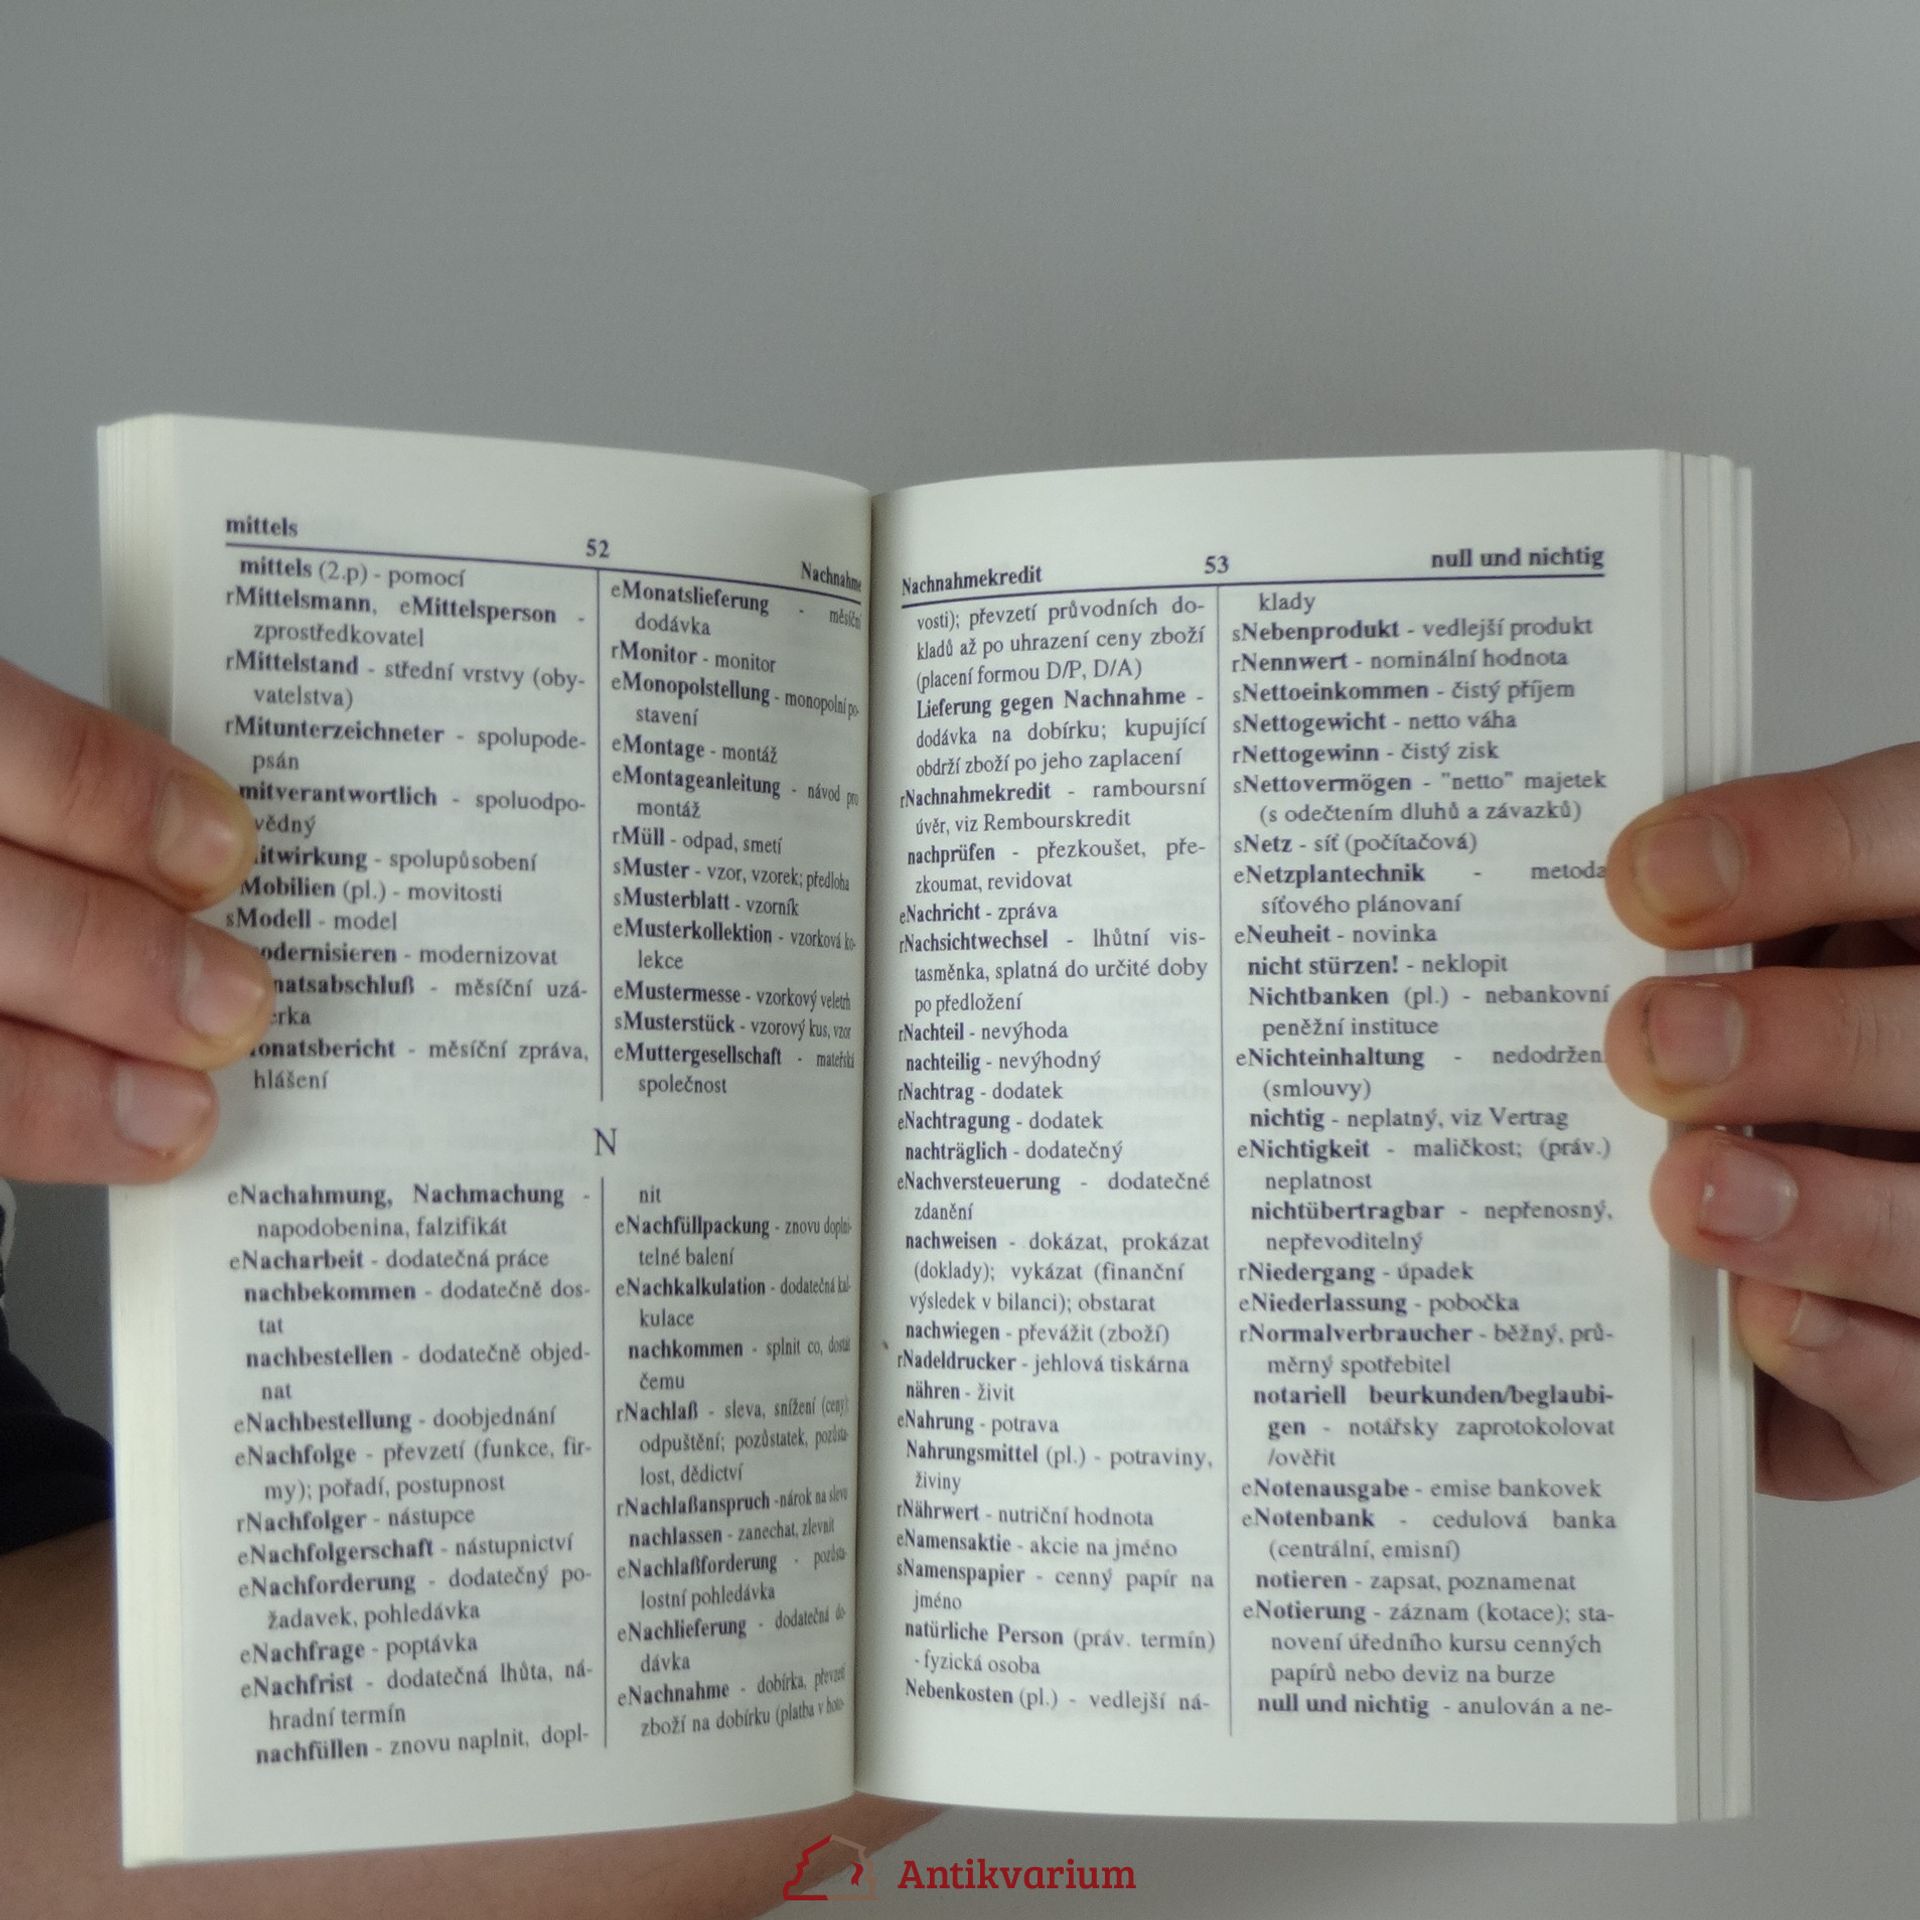 mittels
52
Nachnahme
mittels (2.p) - pomocí
rMittelsmann, eMittelsperson -
zprostředkovatel
rMittelstand - střední vrstvy (oby-
vatelstva)
rMitunterzeichneter - spolupode-
psán
mitverantwortlich - spoluodpo-
vědný
itwirkung - spolupůsobení
Mobilien (pl.) - movitosti
sModell - model
odernisieren - modernizovat
natsabschluß - měsíční uzá-
erka
onatsbericht - měsíční zpráva,
hlášení
eMonatslieferung - měsíční
dodávka
rMonitor - monitor
eMonopolstellung - monopolní po-
stavení
eMontage - montáž
eMontageanleitung - návod pro
montáž
rMüll - odpad, smetí
sMuster - vzor, vzorek; předloha
sMusterblatt - vzorník
eMusterkollektion - vzorková ko-
lekce
eMustermesse - vzorkový veletrh
sMusterstück - vzorový kus, vzor
eMuttergesellschaft - mateřská
společnost
N
eNachahmung, Nachmachung -
napodobenina, falzifikát
eNacharbeit - dodatečná práce
nachbekommen - dodatečně dos-
tat
nachbestellen - dodatečně objed-
nat
eNachbestellung - doobjednání
eNachfolge - převzetí (funkce, fir-
my); pořadí, postupnost
rNachfolger - nástupce
eNachfolgerschaft - nástupnictví
eNachforderung - dodatečný po-
žadavek, pohledávka
eNachfrage - poptávka
eNachfrist - dodatečná lhůta, ná-
hradní termín
nachfüllen - znovu naplnit, dopl-
nit
eNachfüllpackung - znovu doplni-
telné balení
eNachkalkulation - dodatečná kal-
kulace
nachkommen - splnit co, dostát
čemu
rNachlaß - sleva, snížení (ceny);
odpuštění; pozůstatek, pozůsta-
lost, dědictví
rNachlaßanspruch -nárok na slevu
nachlassen - zanechat, zlevnit
eNachlaßforderung - pozůsta-
lostní pohledávka
eNachlieferung - dodatečná do-
dávka
eNachnahme - dobírka, převzetí
zboží na dobírku (platba v hoto-
Nachnahmekredit
53
null und nichtig
vosti); převzetí průvodních do-
kladů až po uhrazení ceny zboží
(placení formou D/P, D/A)
Lieferung gegen Nachnahme -
dodávka na dobírku; kupující
obdrží zboží po jeho zaplacení
rNachnahmekredit - ramboursní
úvěr, viz Rembourskredit
nachprüfen - přezkoušet, pře-
zkoumat, revidovat
eNachricht - zpráva
rNachsichtwechsel - lhůtní vis-
tasměnka, splatná do určité doby
po předložení
rNachteil - nevýhoda
nachteilig - nevýhodný
rNachtrag - dodatek
eNachtragung - dodatek
nachträglich - dodatečný
eNachversteuerung - dodatečné
zdanění
nachweisen - dokázat, prokázat
(doklady); vykázat (finanční
výsledek v bilanci); obstarat
nachwiegen - převážit (zboží)
rNadeldrucker - jehlová tiskárna
nähren - živit
eNahrung - potrava
Nahrungsmittel (pl.) - potraviny,
živiny
rNährwert - nutriční hodnota
eNamensaktie - akcie na jméno
sNamenspapier - cenný papír na
jméno
natürliche Person (práv. termín)
- fyzická osoba
Nebenkosten (pl.) - vedlejší ná-
klady
sNebenprodukt - vedlejší produkt
rNennwert - nominální hodnota
sNettoeinkommen - čistý příjem
sNettogewicht - netto váha
rNettogewinn - čistý zisk
sNettovermögen - "netto" majetek
(s odečtením dluhů a závazků)
sNetz - síť (počítačová)
eNetzplantechnik - metoda
síťového plánovaní
eNeuheit - novinka
nicht stürzen! - neklopit
Nichtbanken (pl.) - nebankovní
peněžní instituce
eNichteinhaltung - nedodržen
(smlouvy)
nichtig - neplatný, viz Vertrag
eNichtigkeit - maličkost; (práv.)
neplatnost
nichtübertragbar - nepřenosný,
nepřevoditelný
rNiedergang - úpadek
eNiederlassung - pobočka
rNormalverbraucher - běžný, prů-
měrný spotřebitel
notariell beurkunden/beglaubi-
gen - notářsky zaprotokolovat
/ověřit
eNotenausgabe - emise bankovek
eNotenbank - cedulová banka
(centrální, emisní)
notieren - zapsat, poznamenat
eNotierung - záznam (kotace); sta-
novení úředního kursu cenných
papírů nebo deviz na burze
null und nichtig - anulován a ne-
Antikvarium